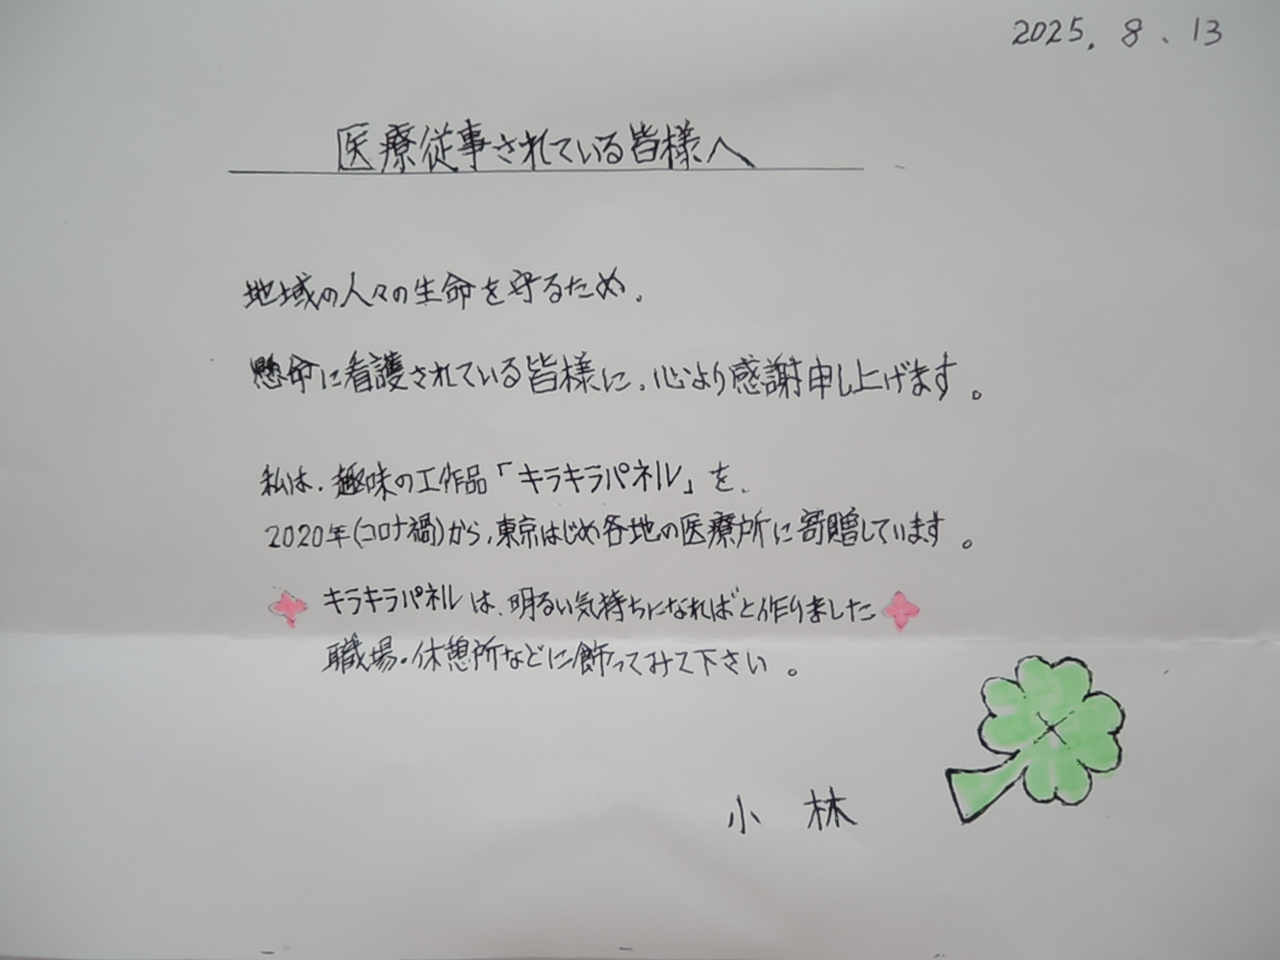 2025. 8. 13
医療従事されている皆様へ
地域の人々の生命を守るため、
懸命に看護されている皆様に、心より感謝申し上げます。
私は、趣味の工作品「キラキラパネル」を、
2020年(コロナ禍)から、東京はじめ各地の医療所に寄贈しています。
キラキラパネルは、明るい気持ちになればと作りました
職場・休憩所などに飾ってみて下さい。
小林